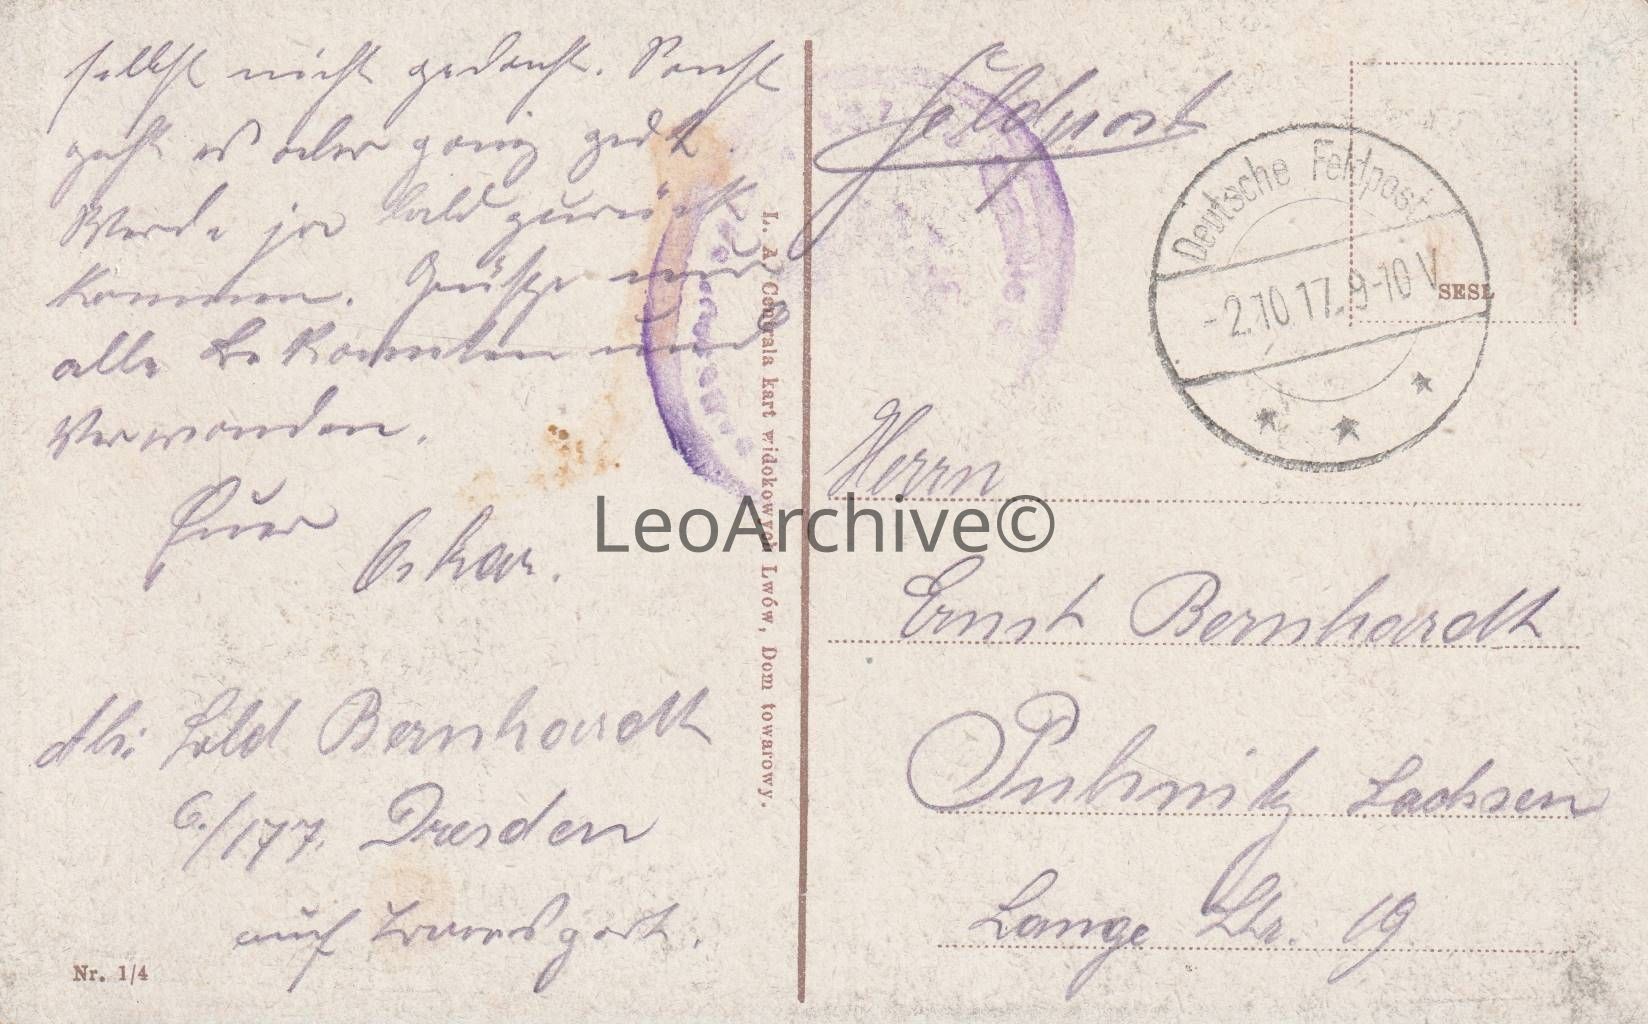 selbst nicht gedacht. Sonst
geht es aber ganz gut.
Werde ja bald zurück
kommen. Grüsse und
alle Bekannten und
Verwanden.
Euer
Oskar.
Abs: Sold Bernhardt
6./177. Dresden
auf Transport.
Nr. 1/4
L. A. Centrala kart widokowych Lwów, Dom towarowy.
Feldpost
Deutsche Feldpost
-2.10.17. 9-10 V
SESL
LeoArchive©
Herrn
Ernst Bernhardt
Pulsnitz Sachsen
Lange Str. 19